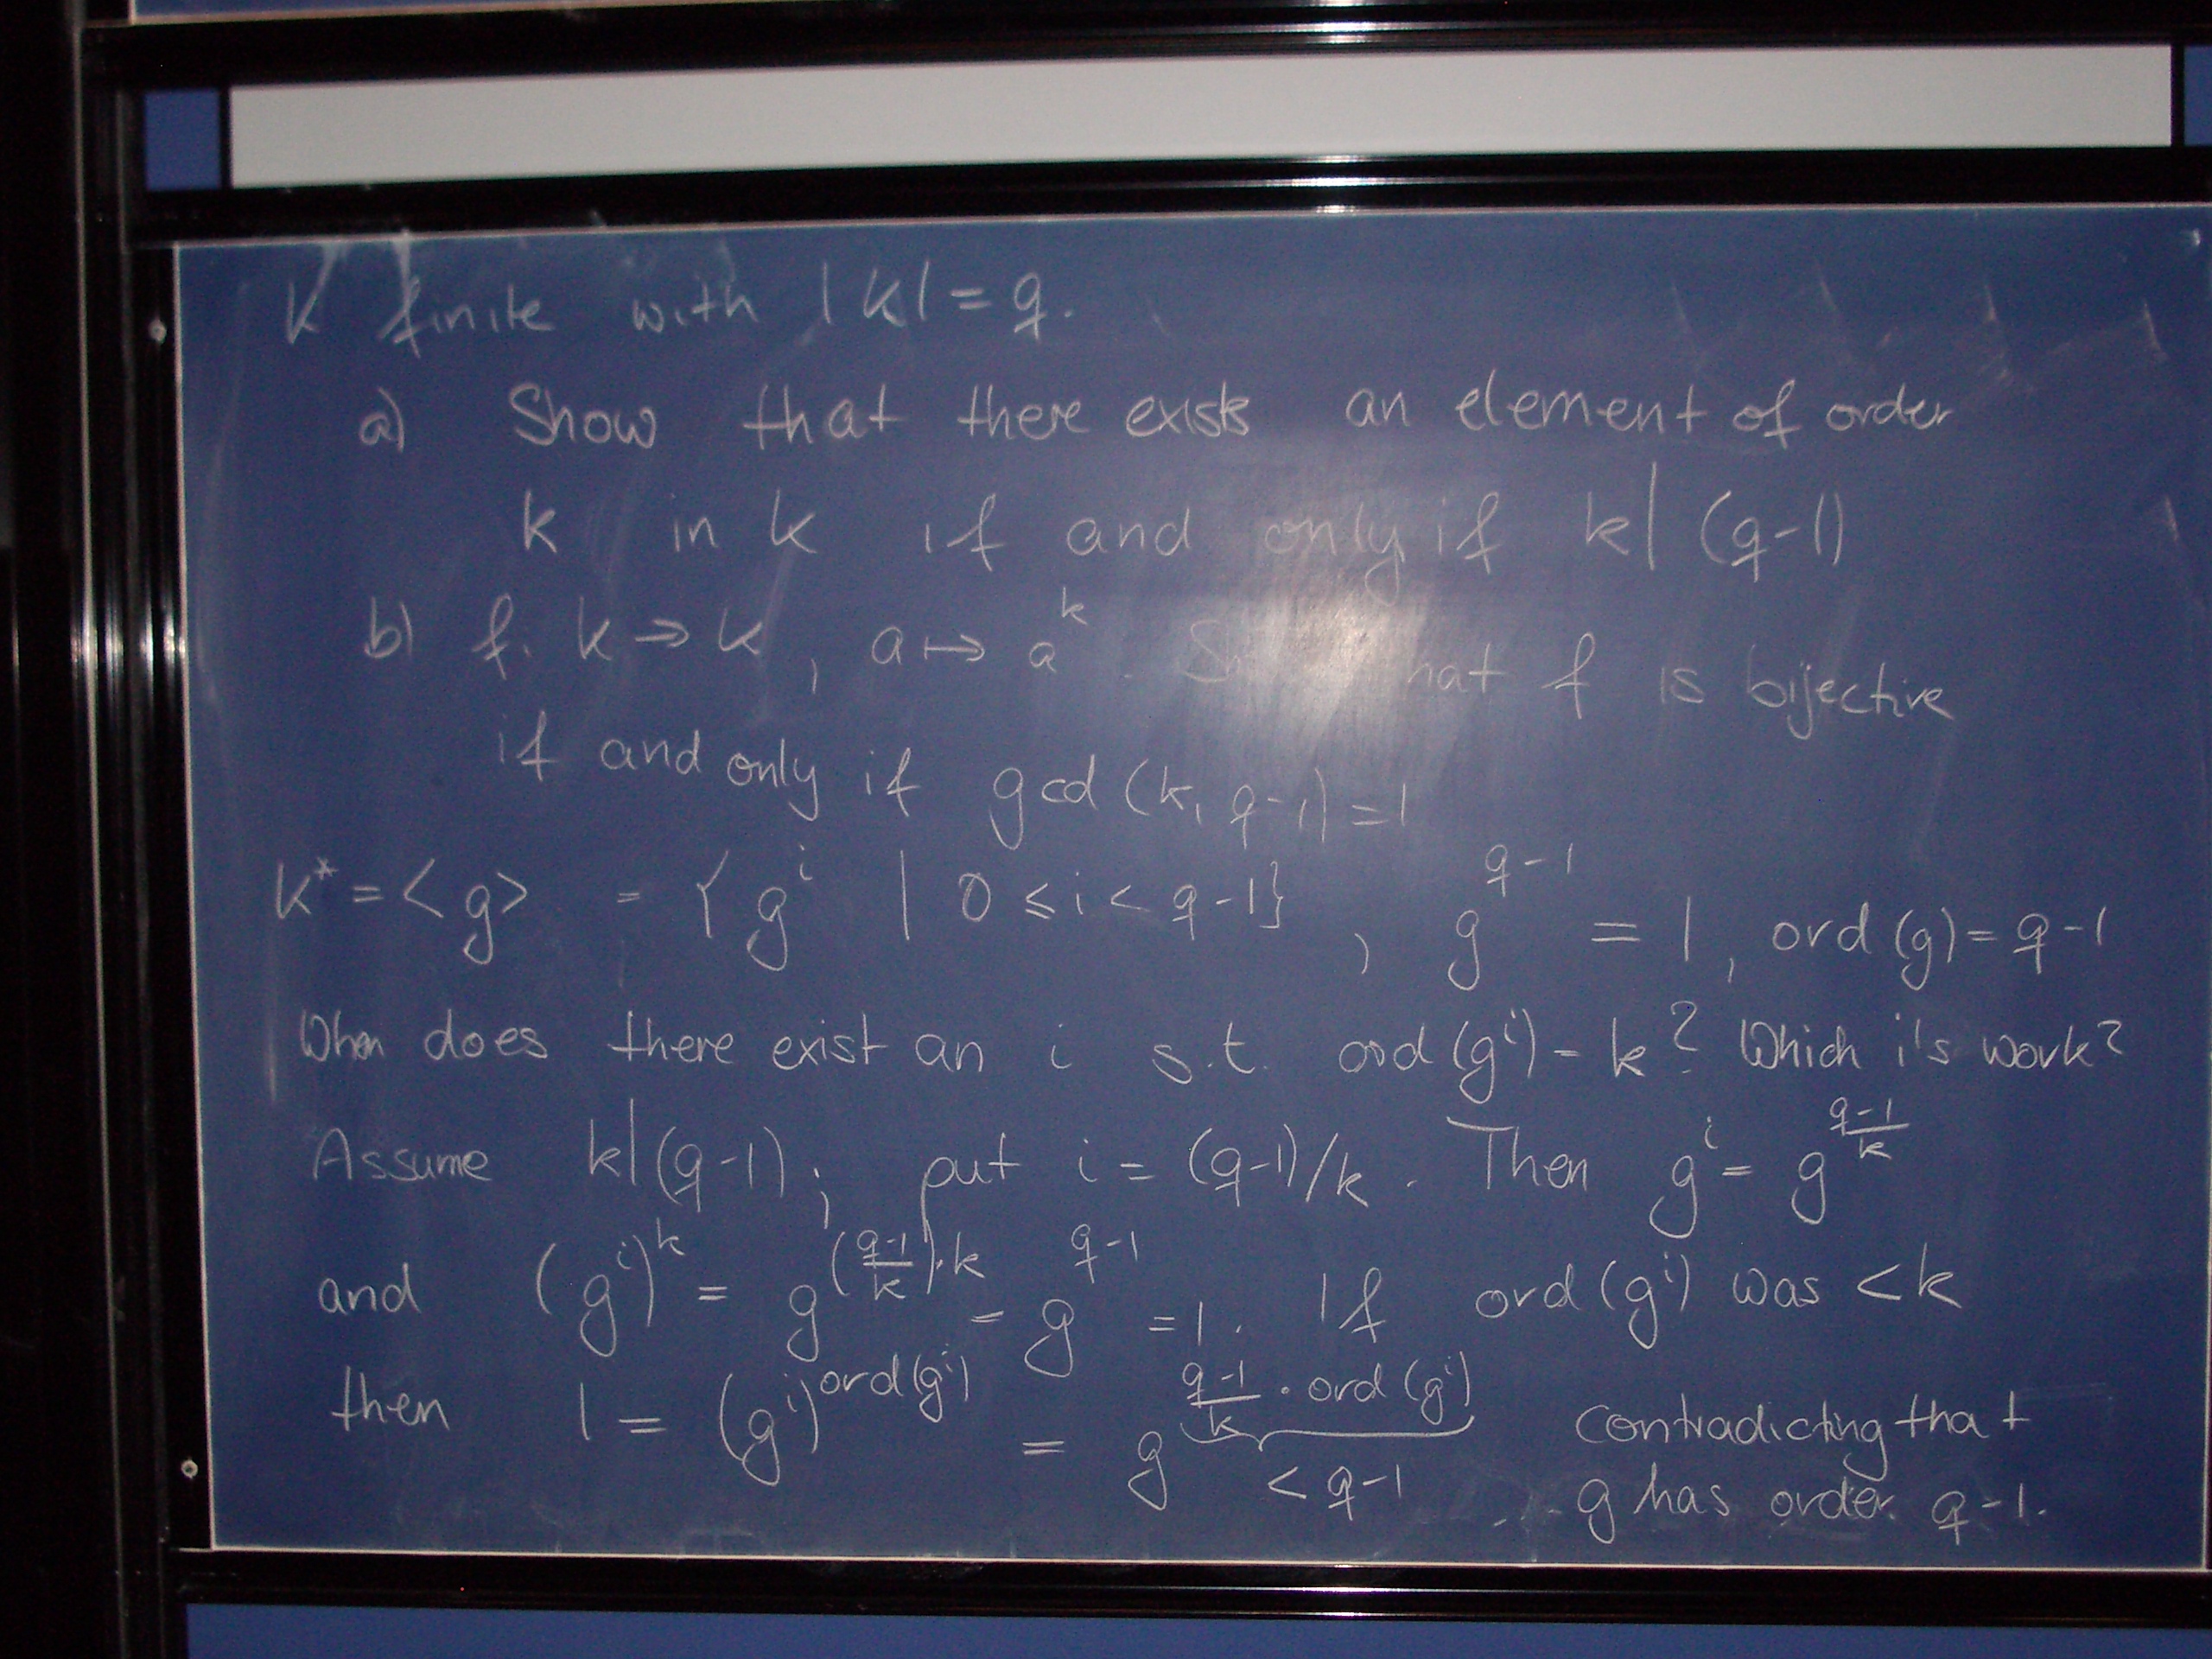 K finite with |K| = q.
a) Show that there exists an element of order
k in K if and only if k | (q-1)
b) f: K → K, a ↦ a^k. Show that f is bijective
if and only if gcd (k, q-1) = 1
K* = <g> = { g^i | 0 ≤ i < q-1}, g^{q-1} = 1, ord (g) = q-1
When does there exist an i s.t. ord (g^i) = k? Which i's work?
Assume k|(q-1); put i = (q-1)/k. Then g^i = g^{\frac{q-1}{k}}
and (g^i)^k = g^{(\frac{q-1}{k})·k} = g^{q-1} = 1. If ord (g^i) was < k
then 1 = (g^i)^{ord(g^i)} = g^{\frac{q-1}{k} · ord (g^i)} contradicting that
< q-1 g has order q-1.